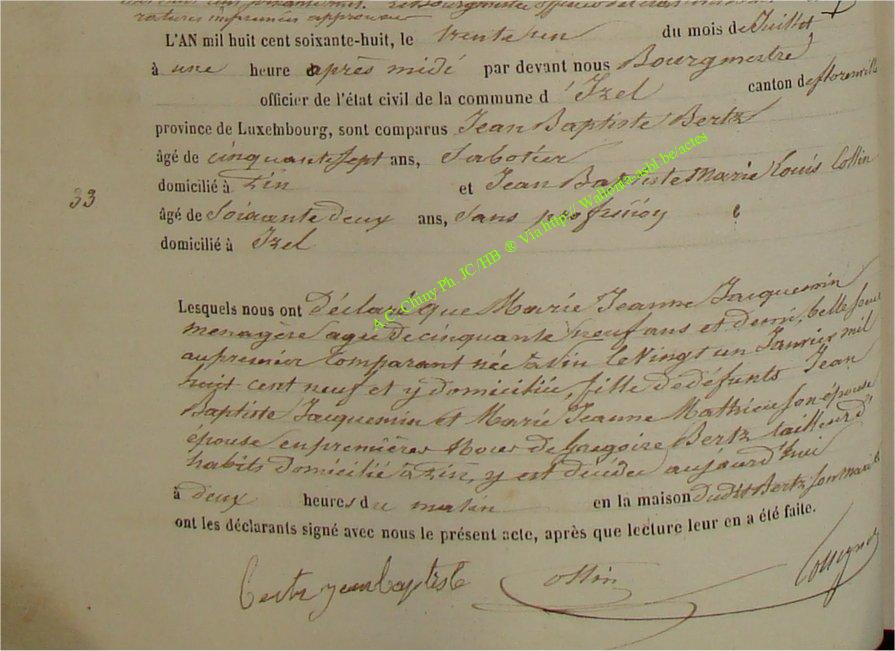 ratures imprimées approuvées
L'AN mil huit cent soixante-huit, le trente un du mois de Juillet
à une heure après midi par devant nous Bourgmestre
officier de l'état civil de la commune d'Izel canton de florenville
province de Luxembourg, sont comparus Jean Baptiste Bertz
âgé de cinquante sept ans, Sabotier
domicilié à Pin et Jean Baptiste Marie Louis Collin
33
âgé de Soixante deux ans, Sans profession
domicilié à Izel
Lesquels nous ont Déclaré que Marie Jeanne Jacquemin
menagère agée de cinquante neuf ans et demi, belle soeur
au premier Comparant née à Pin le Vingt un Janvier mil
huit cent neuf et y domiciliée, fille de défunts Jean
Baptiste Jacquemin et Marie Jeanne Mathieu son épouse
épouse en premières Noces de Gregoire Bertz tailleur d'
habits domicilié à Pin, y est décédée aujourd'hui
à deux heures du matin en la maison dudit Bertz son mari
ont les déclarants signé avec nous le présent acte, après que lecture leur en a été faite.
Bertz jean baptiste Collin
A.C. Chiny Ph. JC/HB ® Via http:// Wallonia-asbl.be/actes